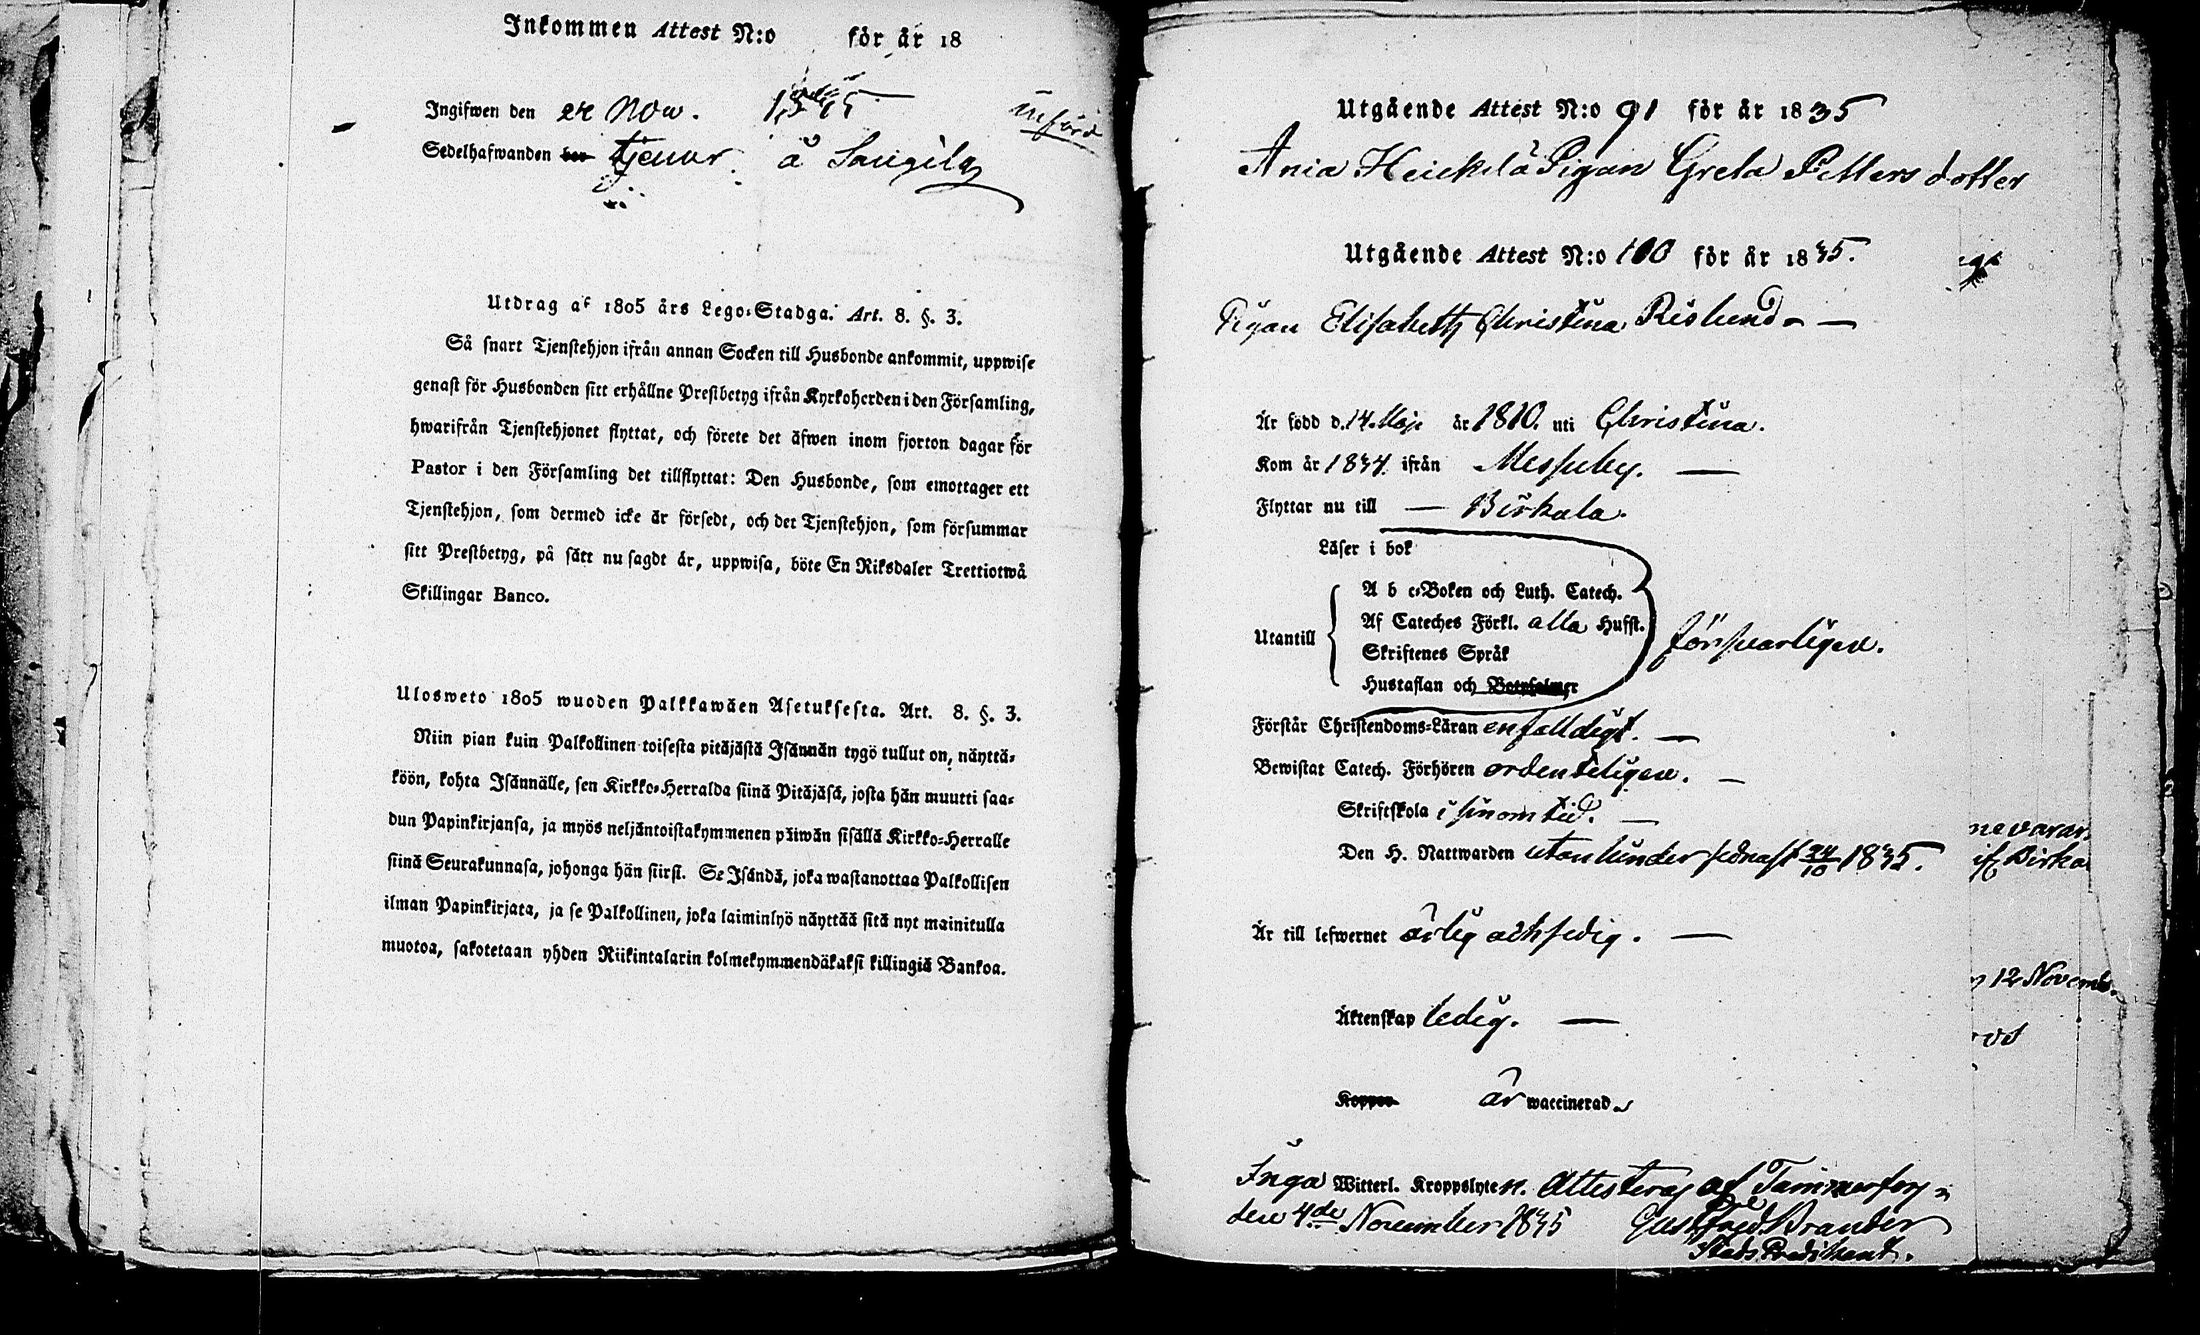 Inkommen Attest N:o för år 18
Ingifwen den 24 Nov. 1835
införd
Sedelhafwanden bor tjenar å
Utdrag af 1805 års Lego-Stadga. Art. 8. §. 3.
Så snart Tjenstehjon ifrån annan Socken till Husbonde ankommit, uppwise
genast för Husbonden sitt erhållne Prestbetyg ifrån Kyrkoherden i den Församling,
hwarifrån Tjenstehjonet flyttat, och förete det äfwen inom fjorton dagar för
Pastor i den Församling det tillflyttat: Den Husbonde, som emottager ett
Tjenstehjon, som dermed icke är försedt, och det Tjenstehjon, som försummar
sitt Prestbetyg, på sätt nu sagdt är, uppwisa, böte En Riksdaler Trettiotwå
Skillingar Banco.
Ulosweto 1805 wuoden Palkkawäen Asetuksesta. Art. 8. §. 3.
Niin pian kuin Palkollinen toisesta pitäjästä Isännän tygö tullut on, näyttä-
köön, kohta Isännälle, sen Kirkko-Herralda siinä Pitäjäsä, josta hän muutti saa-
dun Papinkirjansa, ja myös neljäntoistakymmenen päiwän sisällä Kirkko-Herralle
siinä Seurakunnasa, johonga hän siirsi. Se Isändä, joka wastanottaa Palkollisen
ilman Papinkirjata, ja se Palkollinen, joka laiminlyö näyttää sitä nyt mainitulla
muotoa, sakotetaan yhden Riikintalarin kolmekymmendäkaksi killingiä Bankoa.
Utgående Attest N:o 91 för år 1835
Ania Heickilä Pigan Greta Pettersdotter
Utgående Attest N:o 100 för år 1835.
Pigan Elisabeth Christina Rislund
Är född d. 14. Maji år 1810. uti Christina.
Kom år 1834 ifrån Messuby.
Flyttar nu till Birkala.
Läser i bok
A b c-Boken och Luth. Catech.
Utantill Af Cateches Förkl. alla Hufst. försvarligen.
Skriftenes Språk
Hustaflan och Botpsalmer
Förstår Christendoms-Läran enfalldigt.
Bewistat Catech. Förhören ordenteligen.
Skriftskola i sinom tid.
Den H. Nattwarden utan hinder sednast 24/10 1835.
ne varar
if Birka
Är till lefwernet ärlig och sedig.
12 Novemb.
Äktenskap ledig.
Koppor är waccinerad.
Inga Witterl. Kroppslyten. Attesteras af Tammerfors
den 4de November 1835 Gust. Fred. Brander
Stads Predikant.